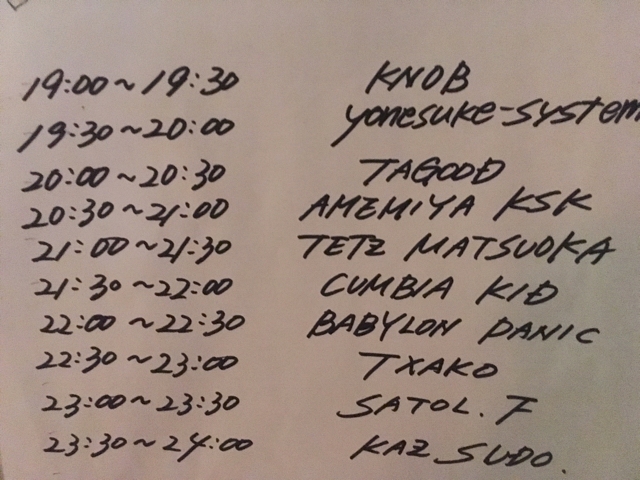 19:00~19:30 KNOB
19:30~20:00 yonesuke-system
20:00~20:30 TAGOOD
20:30~21:00 AMEMIYA KSK
21:00~21:30 TETZ MATSUOKA
21:30~22:00 CUMBIA KID
22:00~22:30 BABYLON PANIC
22:30~23:00 TXAKO
23:00~23:30 SATOL.F
23:30~24:00 KAZ SUDO.